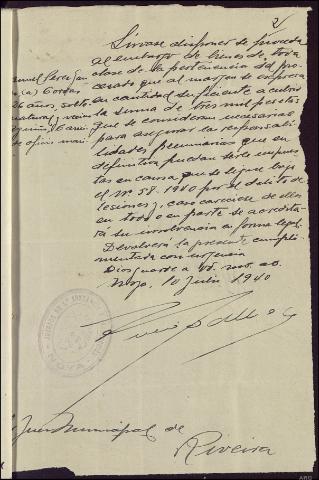 2
Sirvase disponer se proceda
al embargo de bienes de toda
clase de la pertenencia del pro-
cesado que al margen se expresa
en cantidad suficiente a cubrir
la suma de tres mil pesetas
que se consideran necesarias
para asegurar la responsabi-
lidades pecuniarias que en
definitiva puedan serle impues-
tas en causa que se sigue bajo
el nº 58-1940 por el delito de
lesiones; caso carecise de ellos
en todo o en parte se acredita-
rá su insolvencia en forma legal.
Devolverá la presente cumpli-
mentada con urgencia
Dios guarde a Vd. m. a.
Noya, 10 Julio 1940
años, solt
de oficio mari
NOYA
Juez Municipal de
Riveira